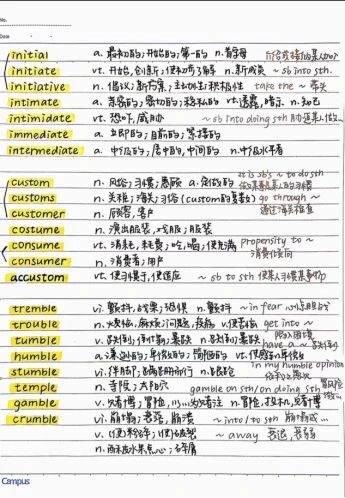 No.
Date
initial a. 最初的;开始的;第一的 n.首字母
initiate vt. 开始,创新;使初步了解 n.新成员 ~ sb into sth.
initiative n. 倡议;新方案;主动性;积极性 take the ~ 率先
intimate a. 亲密的;密切的;私人的 vt.透露,暗示 n.知己
intimidate vt. 恐吓,威胁 ~ sb into doing sth 胁迫某人做...
immediate a. 立即的;目前的;紧接的
intermediate a. 中级的;居中的;中间的 n.中级水平者
custom n. 风俗;习惯;惠顾 a.定做的 it is sb's ~ to do sth
customs n. 关税;海关;习俗(custom的复数) go through ~
customer n. 顾客,客户 通过海关检查
costume n. 演出服装,戏服;服装
consume vt. 消耗,耗费;吃,喝;使充满 propensity to ~
consumer n. 消费者;用户 消费倾向
accustom vt. 使习惯于,使适应 ~ sb to sth 使某人习惯某事物
tremble vi. 颤抖;战栗;恐惧 n.颤抖 ~ in fear
trouble n. 烦恼,麻烦;问题;疾病 v.使苦恼 get into ~
tumble v. 跌倒;倒塌;暴跌 n.跌倒;暴跌 陷入困境
humble a. 谦逊的;卑微的;简陋的 vt.使感到卑微 have a ~
stumble vi. 绊脚;蹒跚而行 n.绊脚 in my humble opinion
temple n. 寺院,太阳穴
gamble v. 赌博;冒险,以...为赌注 n.冒险,投机,赌博 gamble on sth/on doing sth
crumble v. 崩塌;衰落,崩溃 ~ into/to sth 崩塌成...
v. (使)粉碎;(使)破裂 ~ away 衰退,衰弱
n. 面包水果点心;碎屑
Campus